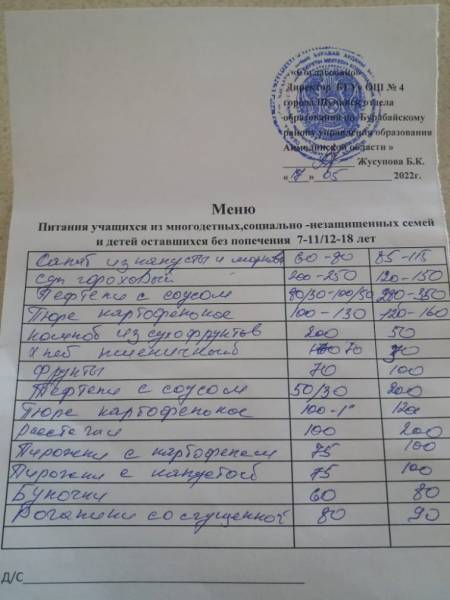 «Согласовано»
Директор КГУ «ОШ № 4
города Щучинск отдела
образования по Бурабайскому
району управления образования
Акмолинской области »
Жусупова Б.К.
« 17 » 05 2022г.
Меню
Питания учащихся из многодетных,социально -незащищенных семей
и детей оставшихся без попечения 7-11/12-18 лет
Салат из капусты и моркови 60-90 85-115
Суп гороховый 200-250 120-150
Тефтели с соусом 80/30-100/50
Пюре картофельное 100-130 120-160
Компот из сухофруктов 200 50
Хлеб пшеничный 70
Фрукты 70 100
Тефтели с соусом 50/30 200
Пюре картофельное
100 200
Пирожки с картофелем 75 100
Пирожки с капустой 75 100
Булочки 60 80
Рогалики со сгущенкой 80 90
Д/С